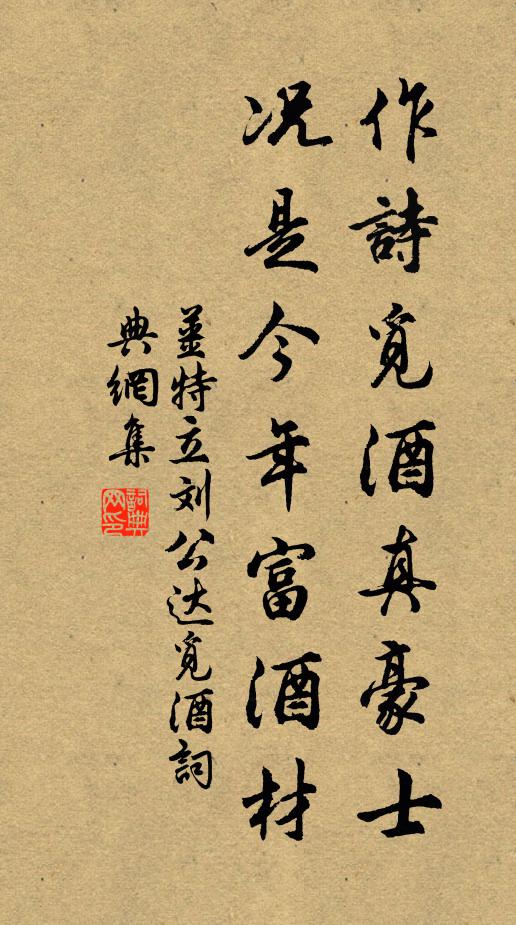 作詩覓酒真豪士
况是今年富酒材
薑特立刘公达覓酒詞
典網集
詞典网印